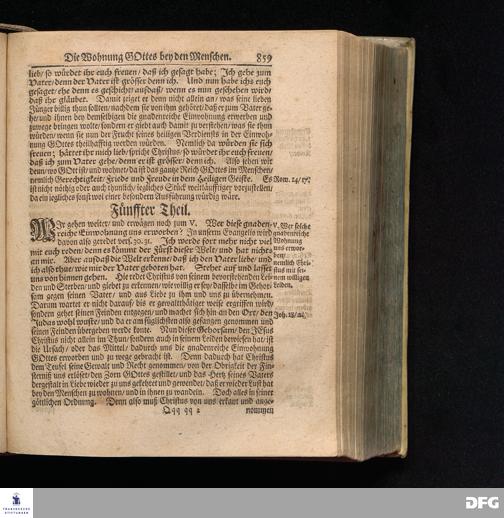 Die Wohnung GOttes bey den Menschen. 859
lieb/ so würdet ihr euch freuen/ daß ich gesagt habe; Ich gehe zum
Vater/ denn der Vater ist grösser denn ich. Und nun habe ichs euch
gesaget/ ehe denn es geschicht/ auf daß/ wenn es nun geschehen wird/
daß ihr gläubet. Damit zeiget er denn nicht allein an/ was seine lieben
Jünger billig thun sollten/ nachdem sie von ihm gehöret/ daß er zum Vater ge-
he/ und ihnen bey demselbigen die gnadenreiche Einwohnung erwerben und
zuwege bringen wolte/ sondern er giebt auch damit zu verstehen/ was sie thun
würden/ wenn sie nun der Frucht seines heiligen Verdiensts in der Einwoh-
nung GOttes theilhafftig werden würden. Nemlich da würden sie sich
freuen; hättet ihr mich lieb/ spricht Christus/ so würdet ihr euch freuen/
daß ich zum Vater gehe/ denn er ist grösser/ denn ich. Also sehen wir
denn/ wo GOtt ist/ und wohnet/ da ist das gantze Reich GOttes im Menschen/
nemlich Gerechtigkeit/ Friede und Freude in dem Heiligen Geiste. Es
Rom. 14/17.
ist nicht nöthig oder auch thunlich/ iegliches Stück weitläufftiger vorzustellen/
da ein iegliches sonst wol einer besondern Ausführung würdig wäre.
Fünffter Theil.
WIr gehen weiter/ und erwägen noch zum V. Wer diese gnaden-
reiche Einwohnung uns erworben? In unserm Evangelio wird
davon also geredet vers. 30. 31. Ich werde fort mehr nicht viel
mit euch reden/ denn es kömmt der Fürst dieser Welt/ und hat nichts
an mir. Aber auf daß die Welt erkenne/ daß ich den Vater liebe/ und
ich also thue/ wie mir der Vater geboten hat. Stehet auf und lasset
uns von hinnen gehen. Hie redet Christus von seinem bevorstehenden Lei-
den und Sterben/ und giebet zu erkennen/ wie willig er sey/ dasselbe im Gehor-
sam gegen seinen Vater/ und aus Liebe zu ihm und uns zu übernehmen.
Darum wartet er nicht darauf/ biß er gewaltthätiger weise ergriffen wird/
sondern gehet seinen Feinden entgegen/ und machet sich hin an den Ort/ den
Judas wohl wuste/ und da er am füglichsten also gefangen genommen und
seinen Feinden übergeben werde konte. Nun dieser Gehorsam/ den JEsus
Christus nicht allein im Thun/ sondern auch in seinem Leiden bewiesen hat/ ist
die Ursach/ oder das Mittel/ dadurch uns die gnadenreiche Einwohnung
GOttes erworben und zu wege gebracht ist. Denn dadurch hat Christus
dem Teufel seine Gewalt und Recht genommen/ von der Obrigkeit der Fin-
sterniß uns erlöset/ den Zorn GOttes gestillet/ und das Hertz seines Vaters
dergestalt in Liebe wieder zu uns gekehret und gewendet/ daß er wieder Lust hat
bey den Menschen zu wohnen/ und in ihnen zu wandeln. Doch alles in seiner
göttlichen Ordnung. Denn also muß Christus von uns erkant und ange-
Qqq qq 2 nommen
V. Wer solche
gnadenreiche
Wohnung
uns erwor-
ben?
nemlich Chri-
stus mit sei-
nem willigen
Leiden.
Joh. 18/2.
FRANCKESCHE
STIFTUNGEN
DFG